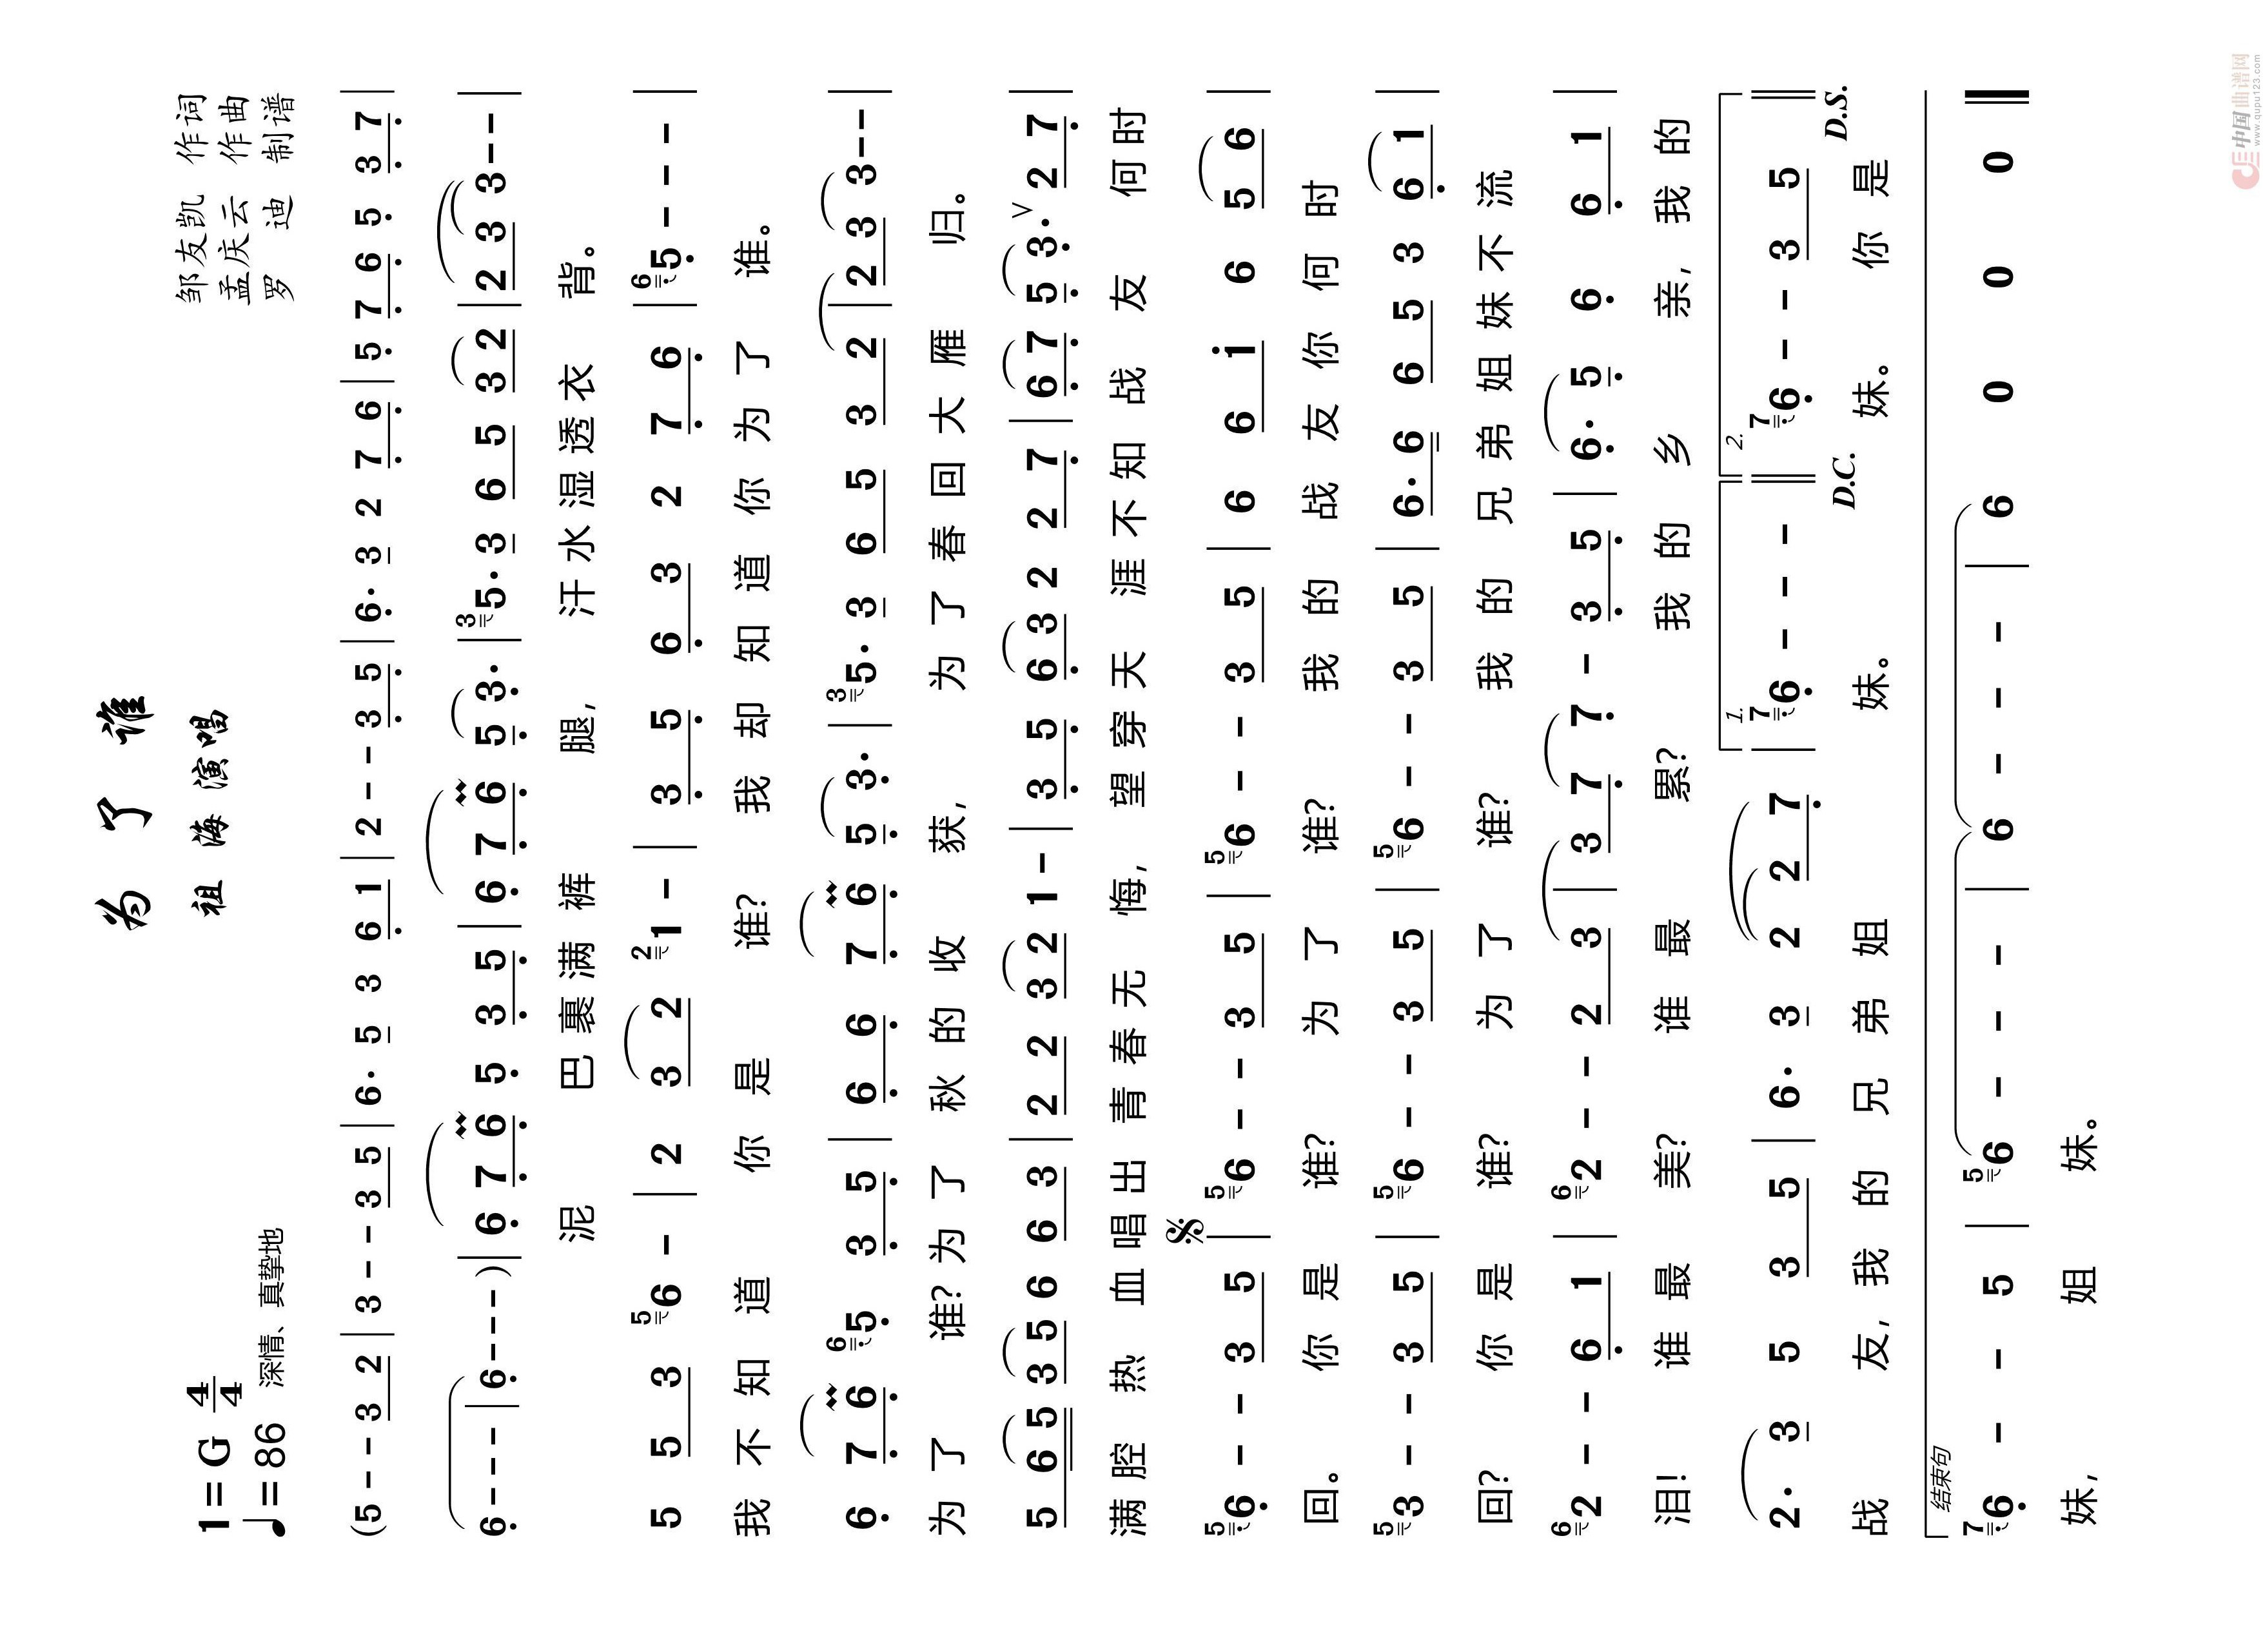 为了谁
祖海演唱
邹友凯 作词
孟庆云 作曲
罗迪 制谱
1=G 4/4
♩=86 深情、真挚地
(5 - - 3 2 | 3 - - 3 5 | 6· 5 3 6 1 | 2 - - 3 5 | 6· 3 2 7 6 | 5 7 6 5 3 7 |
6 - - - | 6 - - - ) | 6 7 6 5 3 5 | 6 7 6 5 3· | 3 5· 3 6 5 3 2 | 2 3 3 - - |
泥巴裹满裤腿, 汗水湿透衣背。
5 5 3 5 6 - | 2 3 2 2 1 - | 3 5 6 3 2 7 6 | 6 5 - - - |
我不知道你是谁? 我却知道你为了谁。
6 7 6 6 5 3 5 | 6 6 7 6 5 3· | 3 5· 3 6 5 3 2 | 2 3 3 - - |
为了谁? 为了秋的收获, 为了春回大雁归。
5 6 5 3 5 6 6 3 | 2 2 3 2 1 - | 3 5 6 3 2 2 7 | 6 7 5 3· 2 7 |
满腔热血唱出青春无悔, 望穿天涯不知战友何时
5 6 - - 3 5 | 5 6 - - 3 5 | 5 6 - - 3 5 | 6 6 1 6 5 6 |
回。 你是谁? 为了谁? 我的战友你何时
5 3 - - 3 5 | 5 6 - - 3 5 | 5 6 - - 3 5 | 6· 6 6 5 3 6 1 |
回? 你是谁? 为了谁? 我的兄弟姐妹不流
6 2 - - 6 1 | 6 2 - - 2 3 | 3 7 7 - 3 5 | 6· 5 6 6 1 |
泪! 谁最美? 谁最累? 我的乡亲, 我的
1.
2.
2· 3 5 3 5 | 6· 3 2 2 7 | 7 6 - - - || 7 6 - - 3 5 ||
D.C.
D.S.
战友, 我的兄弟姐妹。 妹。 你是
结束句
7 6 - - 5 | 5 6 - - - | 6 - - - | 6 0 0 0 ||
妹, 姐妹。
中国曲谱网
www.qupu123.com